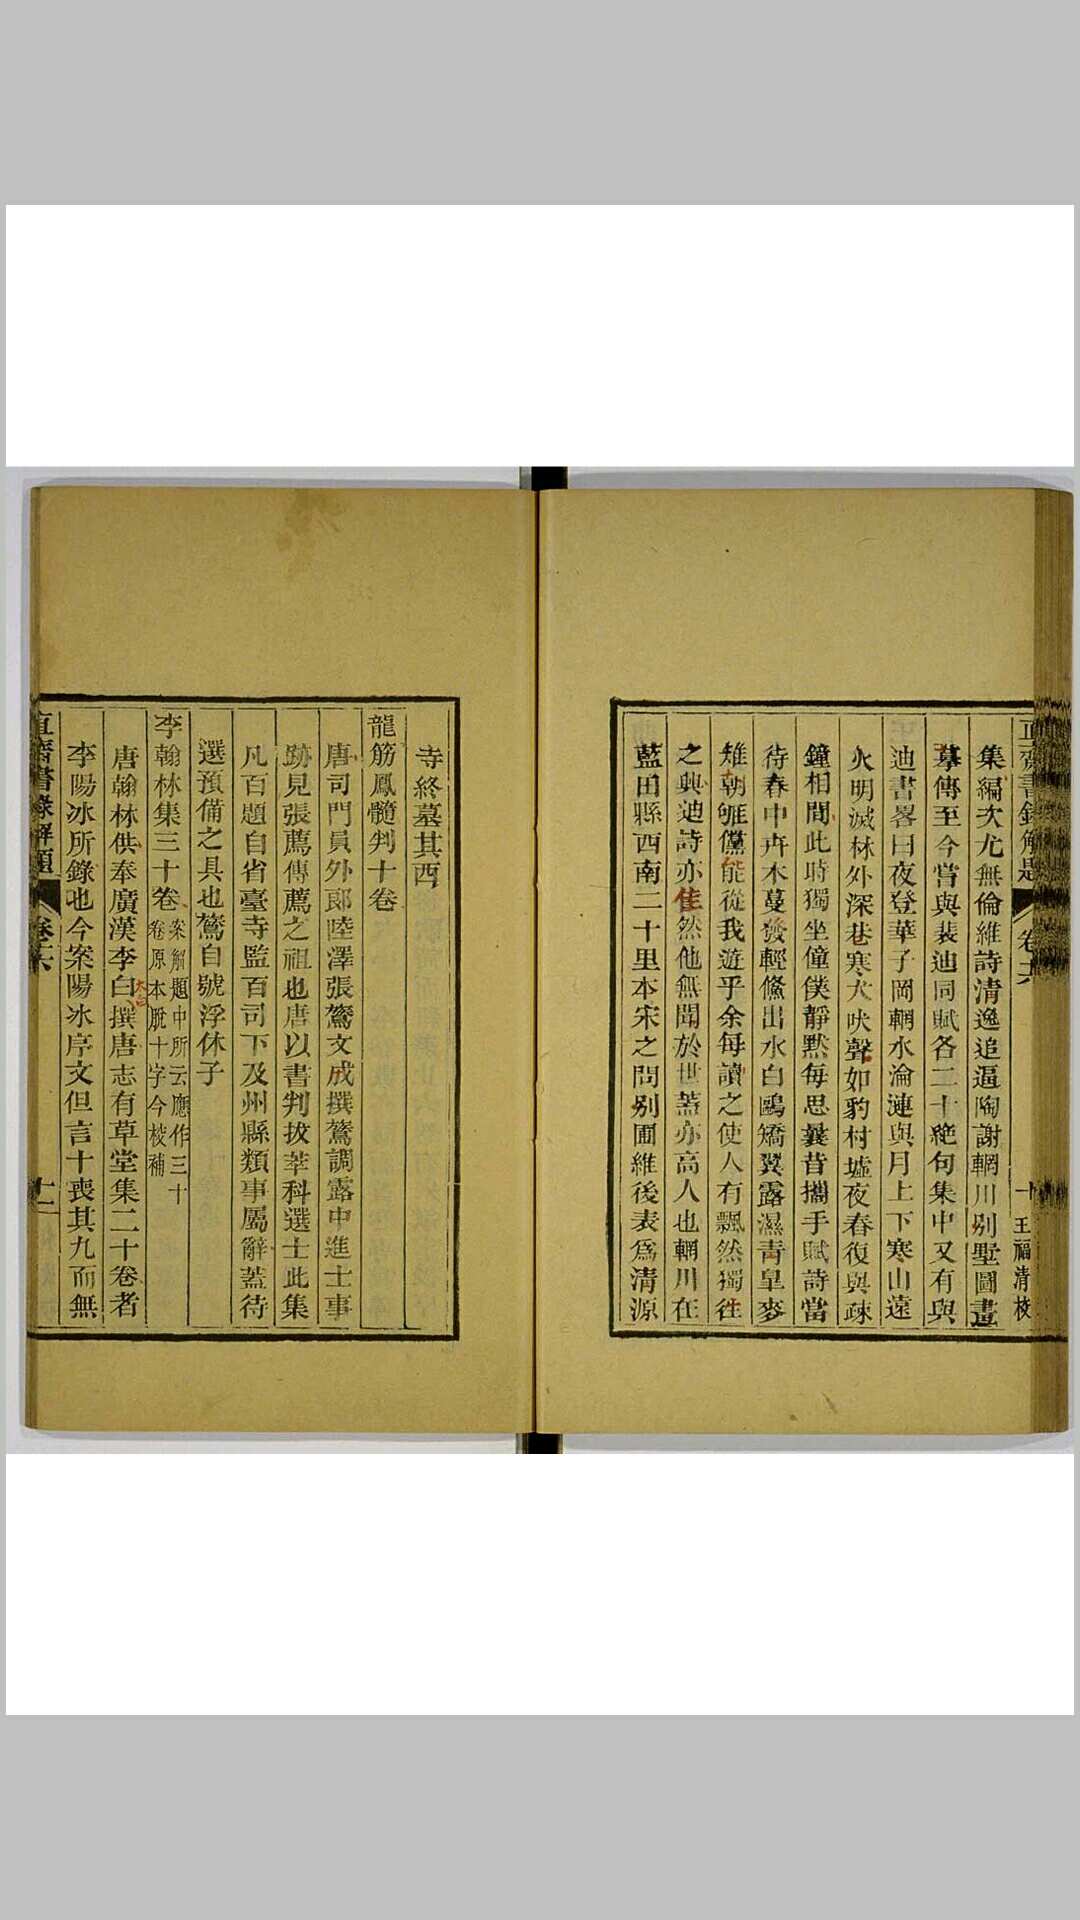 直齋書錄解題 卷十六 十 王福清校
集編次尤無倫維詩清逸追逼陶謝輞川別墅圖畫
摹傳至今嘗與裴迪同賦各二十絶句集中又有與
迪書畧曰夜登華子岡輞水淪漣與月上下寒山遠
火明滅林外深巷寒犬吠聲如豹村墟夜舂復與疎
鐘相間此時獨坐僮僕靜默每思曩昔攜手賦詩當
待春中卉木蔓發輕鯈出水白鷗矯翼露濕青臯麥
雉朝雊儻能從我遊乎余每讀之使人有飄然獨往
之興迪詩亦佳然他無聞於世蓋亦高人也輞川在
藍田縣西南二十里本宋之問別圃維後表爲清源
寺終墓其西
龍筋鳳髓判十卷
唐司門員外郎陸澤張鷟文成撰鷟調露中進士事
跡見張薦傳薦之祖也唐以書判拔萃科選士此集
凡百題自省臺寺監百司下及州縣類事屬辭蓋待
選預備之具也鷟自號浮休子
李翰林集三十卷 案解題中所云應作三十
卷原本脫十字今校補
唐翰林供奉廣漢李白撰唐志有草堂集二十卷者
太白
李陽冰所錄也今案陽冰序文但言十喪其九而無
直齋書錄解題 卷十六 十一